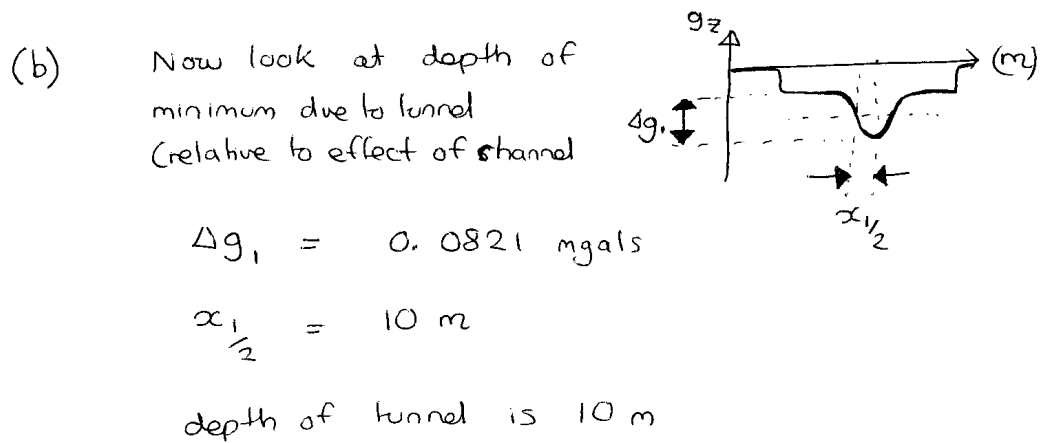 (b) Now look at depth of
minimum due to tunnel
(relative to effect of channel
Δg₁ = 0.0821 mgals
x½ = 10 m
depth of tunnel is 10 m
gz
(m)
Δg₁
x½